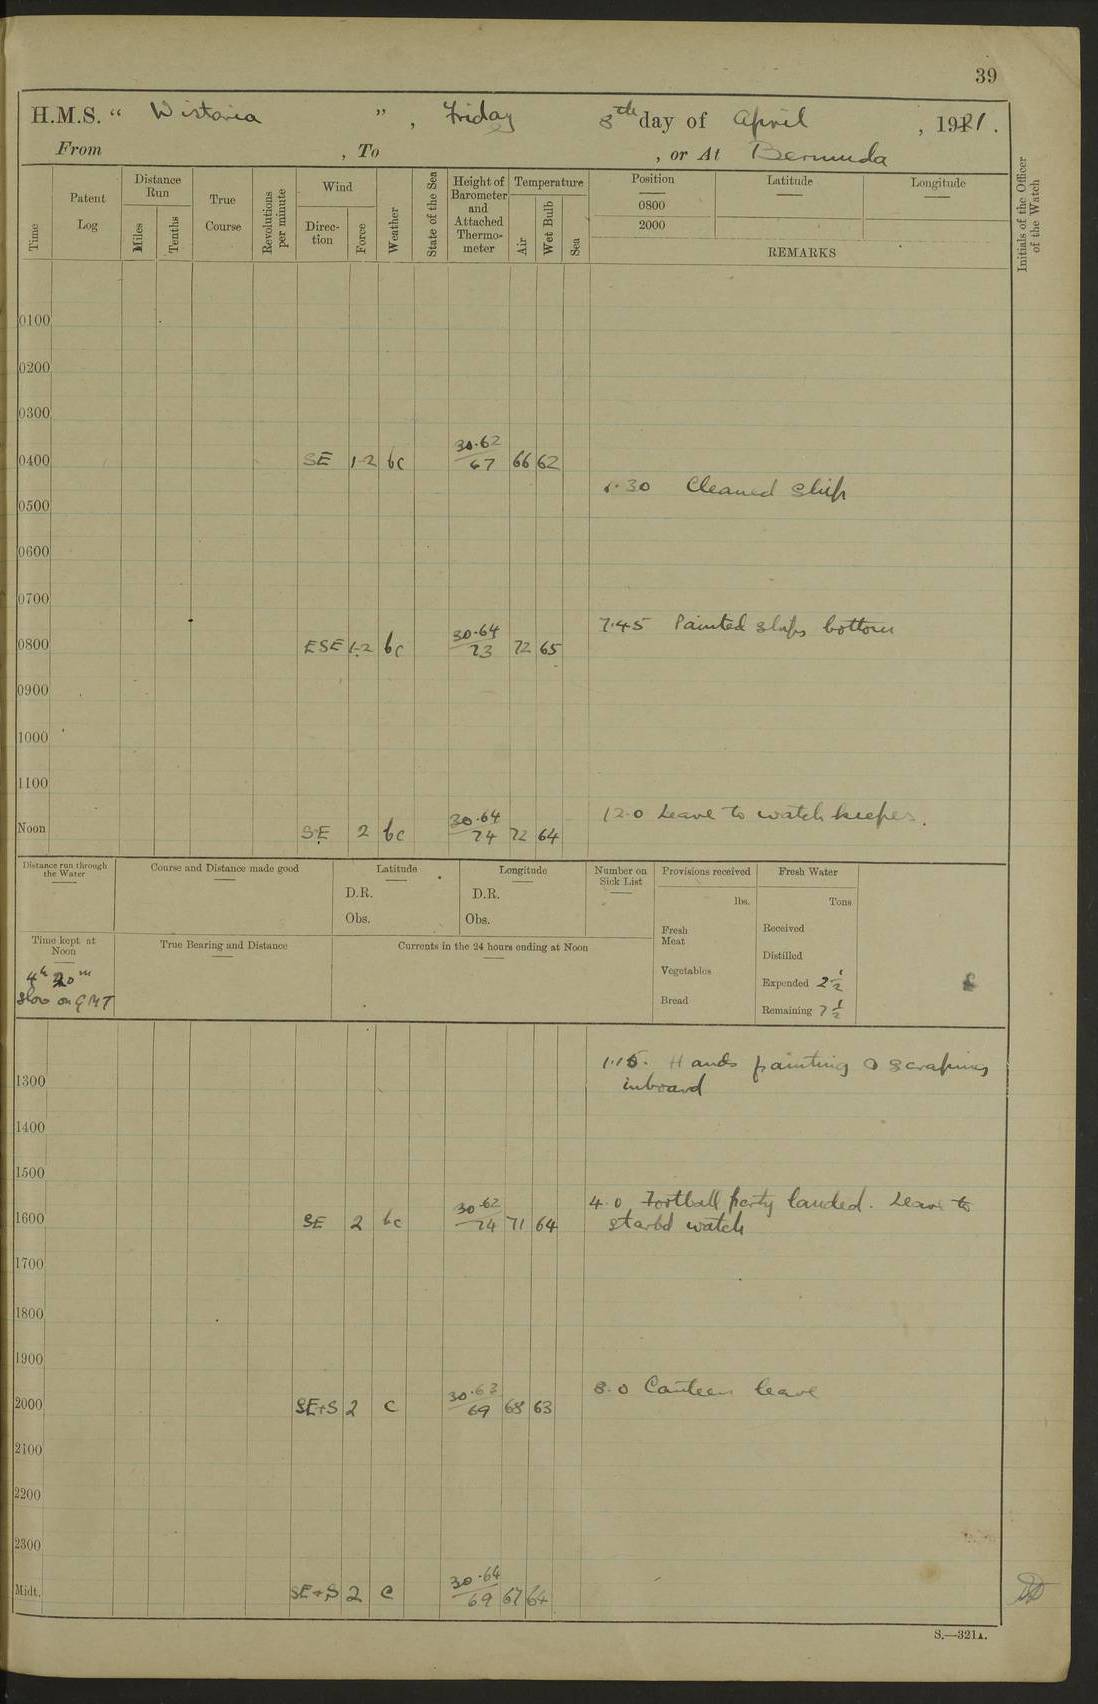 39
H.M.S. “ Wistaria ” , Friday 8th day of April , 1921 .
From , To , or At Bermuda
Time
Patent Log
Distance Run
Miles
Tenths
True Course
Revolutions per minute
Wind
Direc-tion
Force
Weather
State of the Sea
Height of Barometer and Attached Thermo-meter
Temperature
Air
Wet Bulb
Sea
Position
0800
2000
Latitude
Longitude
REMARKS
Initials of the Officer of the Watch
0100
0200
0300
0400 SE 1-2 bc 30.62 67 66 62
.30 Cleaned Ship
0500
0600
0700
7.45 Painted ships bottom
0800 ESE 1-2 bc 30.64 73 72 65
0900
1000
1100
12.0 Leave to watch keepers.
Noon SE 2 bc 30.64 74 72 64
Distance run through the Water
Course and Distance made good
Latitude
D.R.
Obs.
Longitude
D.R.
Obs.
Number on Sick List
Provisions received
lbs.
Fresh Meat
Vegetables
Bread
Fresh Water
Tons
Received
Distilled
Expended 2 1/2
Remaining 7 1/2
Time kept at Noon
4h 20m
slow on GMT
True Bearing and Distance
Currents in the 24 hours ending at Noon
1.15. Hands painting & scraping
inboard
1300
1400
1500
4.0 Football party landed. Leave to
starbd watch
1600 SE 2 bc 30.62 74 71 64
1700
1800
1900
8.0 Canteen leave
2000 SE+S 2 c 30.63 69 68 63
2100
2200
2300
Midt. SE+S 2 c 30.64 69 67 64
S.—321A.